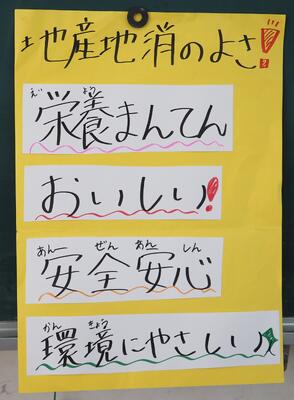 地産地消のよさ!?
えいよう
栄養まんてん
おいしい!
あんぜんあんしん
安全安心
かんきょう
環境にやさしい